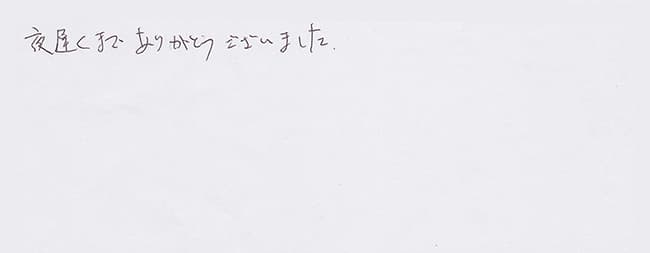 夜遅くまで ありがとう ございました.